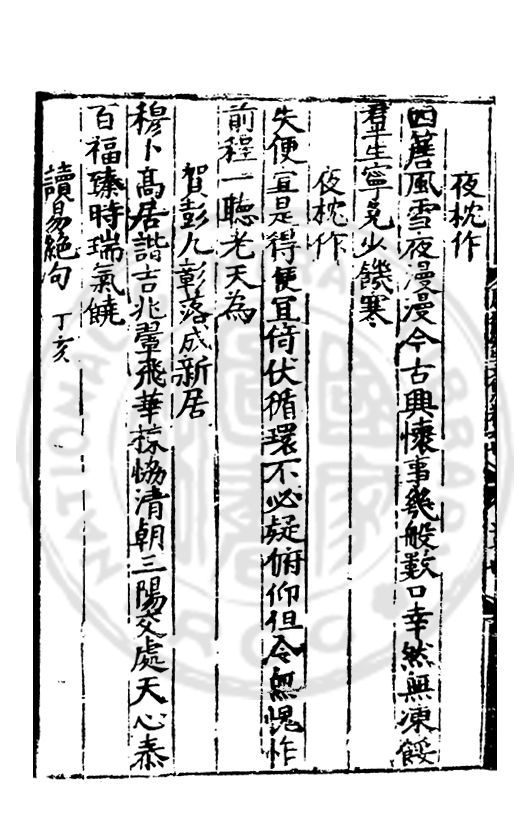 夜枕作
四簷風雪夜漫漫今古興懷事幾般數口幸然無凍餒
羣生寧免少饑寒
夜枕作
失便宜是得便宜倚伏循環不必疑俯仰但令無愧怍
前程一聽老天為
賀彭九彰落成新居
穆卜髙居諧吉兆翬飛華棟協清朝三陽交處天心泰
百福臻時瑞氣饒
讀易絕句 丁亥